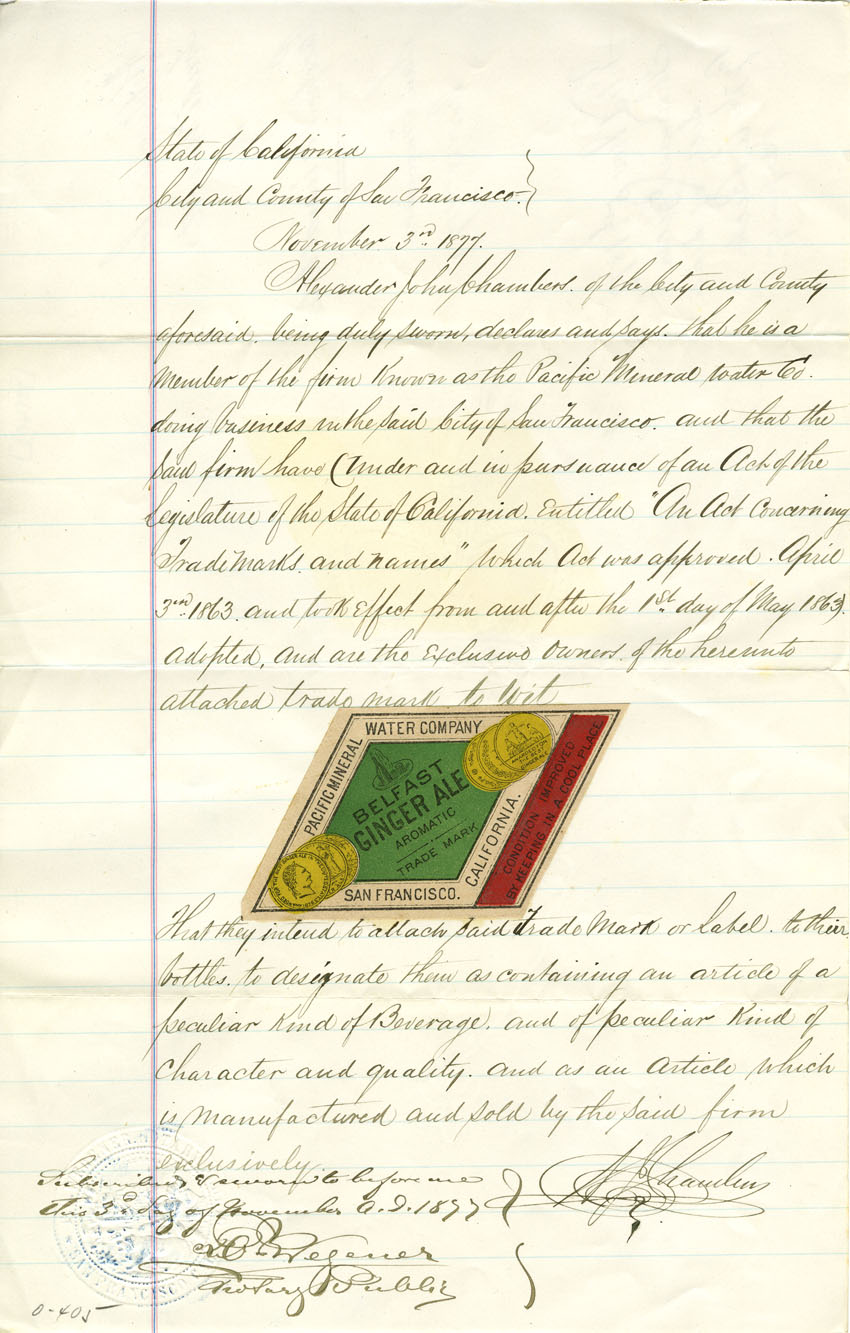 State of California
City and County of San Francisco.
November 3rd 1877.
Alexander John Chambers. of the City and County
aforesaid. being duly sworn, declares and says. that he is a
Member of the firm Known as the Pacific Mineral Water Co.
doing business in the said City of San Francisco. and that the
said firm have (Under and in pursuance of an Act of the
Legislature of the State of California. Entitled "An Act Concerning
Trade Marks and names" Which Act was approved. April
3rd 1863. and took Effect from and after the 1st day of May 1863).
adopted, and are the Exclusive Owners. of the hereunto
attached trade mark to Wit
PACIFIC MINERAL
WATER COMPANY
BELFAST
GINGER ALE
AROMATIC
TRADE MARK
SAN FRANCISCO.
CALIFORNIA.
CONDITION IMPROVED
BY KEEPING IN A COOL PLACE
That they intend to attach said Trade Mark or Label. to their
bottles. to designate them as containing an article of a
peculiar Kind of Beverage. and of peculiar Kind of
Character and quality. and as an Article which
is manufactured and sold by the said firm
exclusively
A J Chambers
Subscribed & sworn to before me
this 3rd day of November a.d. 1877
Wegener
Notary Public
SAN FRANCISCO
0-405